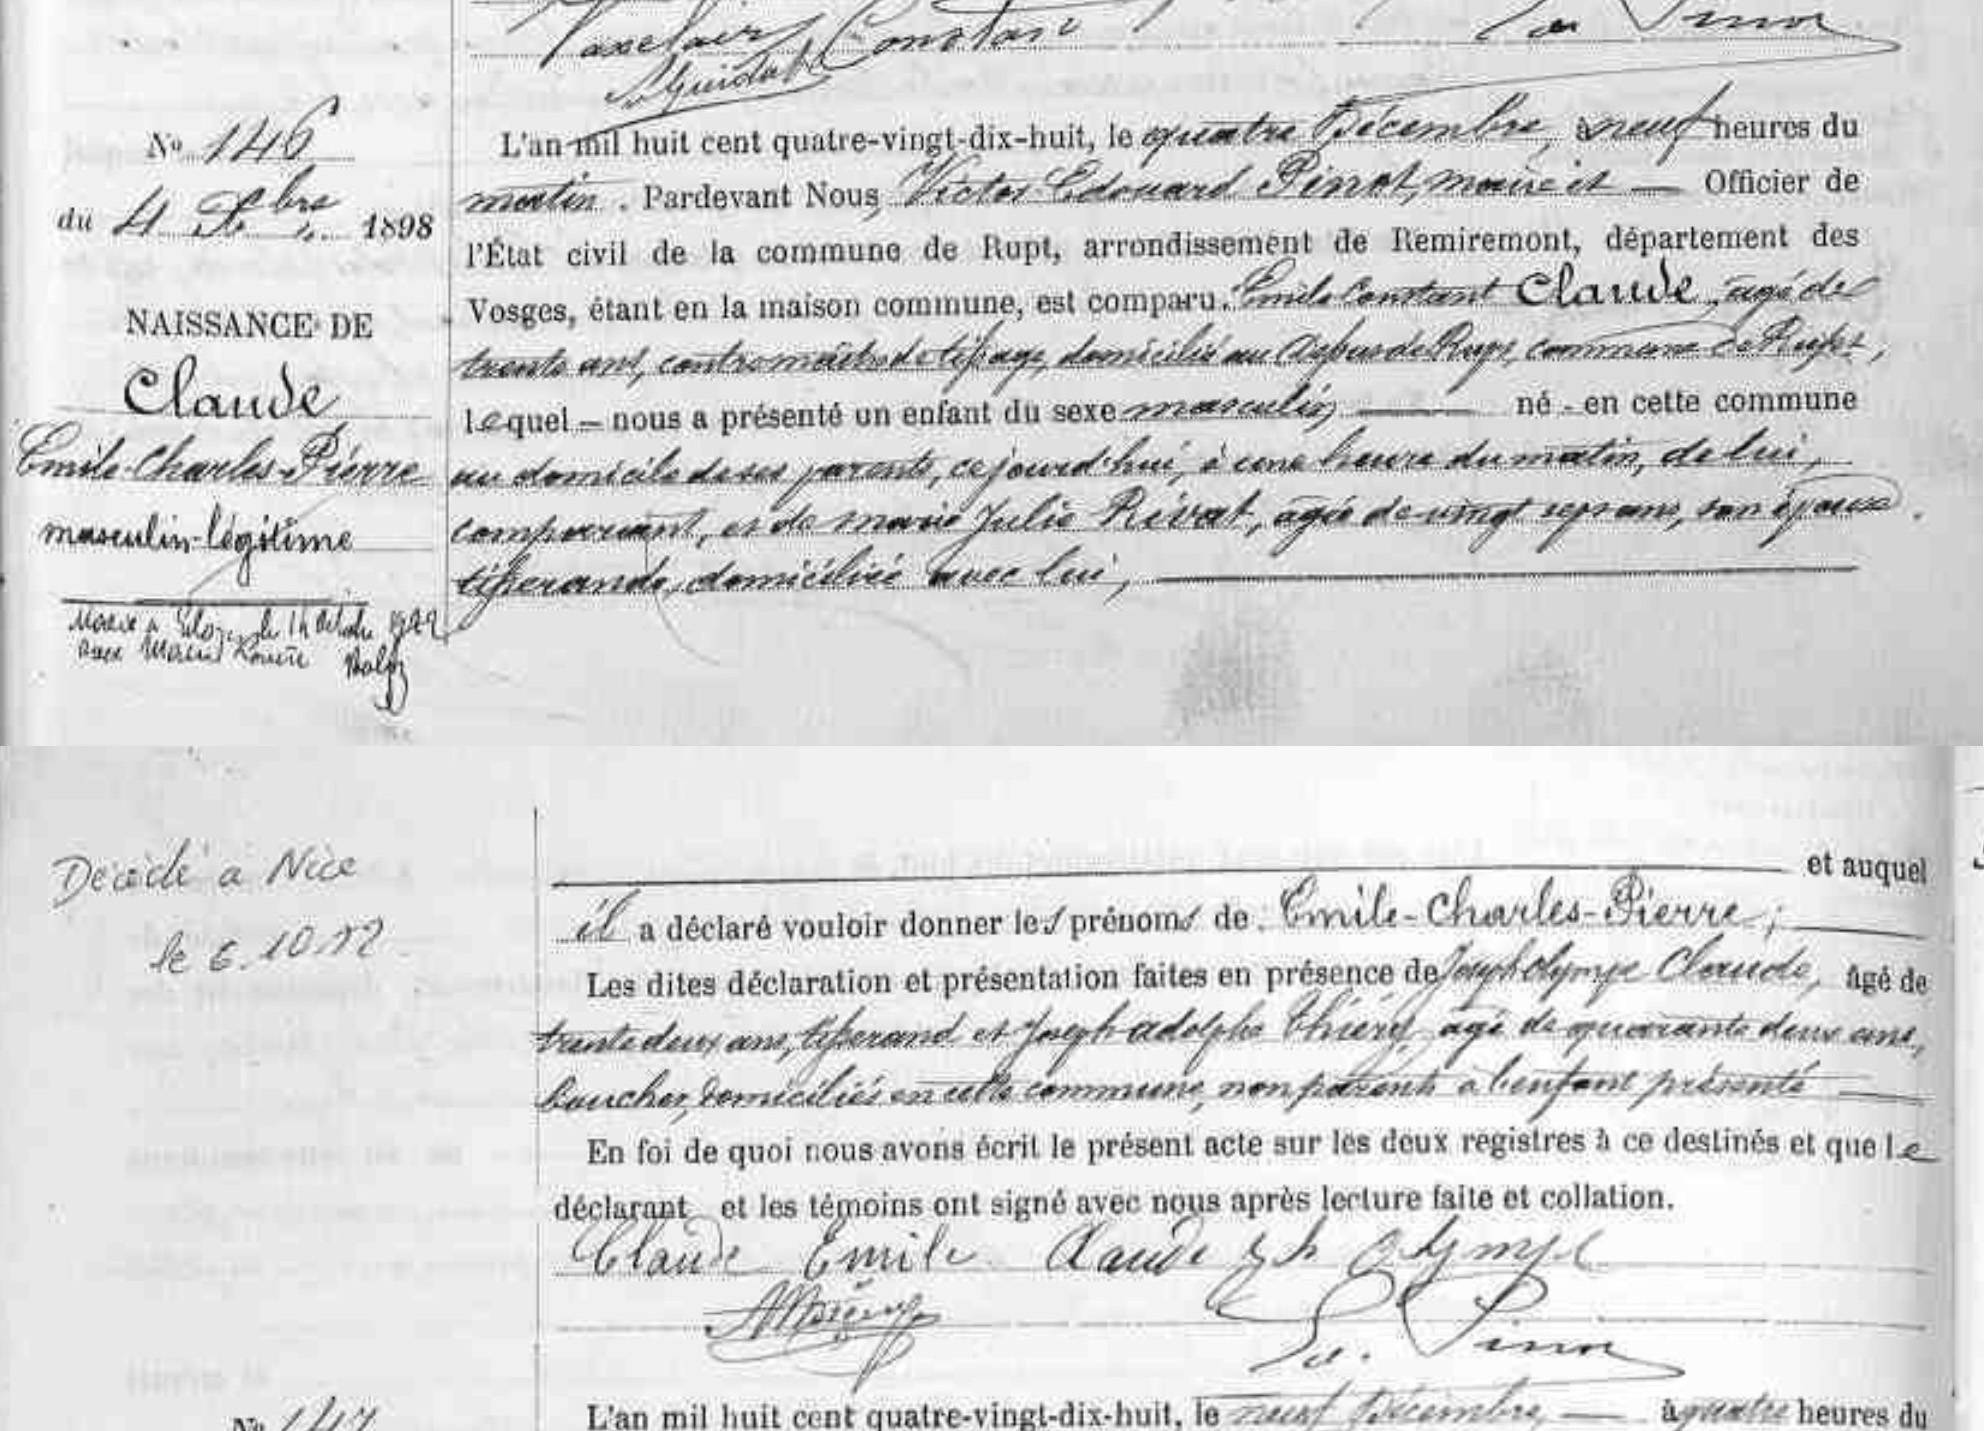 Constant Ed. Pinot
No 146
du 4 Xbre 1898
NAISSANCE DE
Claude
Emile-Charles-Pierre
masculin-légitime
Marié à le 14 Octobre 1922
avec
L'an mil huit cent quatre-vingt-dix-huit, le quatre Décembre, à neuf heures du
matin. Pardevant Nous, Victor Edouard Pinot, maire et — Officier de
l'État civil de la commune de Rupt, arrondissement de Remiremont, département des
Vosges, étant en la maison commune, est comparu Emile Constant Claude, agé de
trente ans, contremaître de tissage, domicilié au de Rupt, commune de Rupt,
lequel — nous a présenté un enfant du sexe masculin, — né - en cette commune
au domicile de ses parents, ce jourd'hui, à une heure du matin, de lui,
comparant, et de marie Julie Rivat, agée de vingt sept ans, son épouse
tisserande, domiciliée avec lui, —
Décédé a Nice
le 6.10.
et auquel
il a déclaré vouloir donner les prénoms de : Emile-Charles-Pierre ;
Les dites déclaration et présentation faites en présence de Joseph olympe Claude, âgé de
trente deux ans, tisserand et Joseph adolphe Thiéry, agé de quarante deux ans,
boucher, domiciliés en cette commune, non parents à l'enfant présenté —
En foi de quoi nous avons écrit le présent acte sur les deux registres à ce destinés et que le
déclarant et les témoins ont signé avec nous après lecture faite et collation.
Claude Emile Claude Jh Olympe
Ed. Pinot
No 147
L'an mil huit cent quatre-vingt-dix-huit, le neuf Décembre, — à quatre heures du